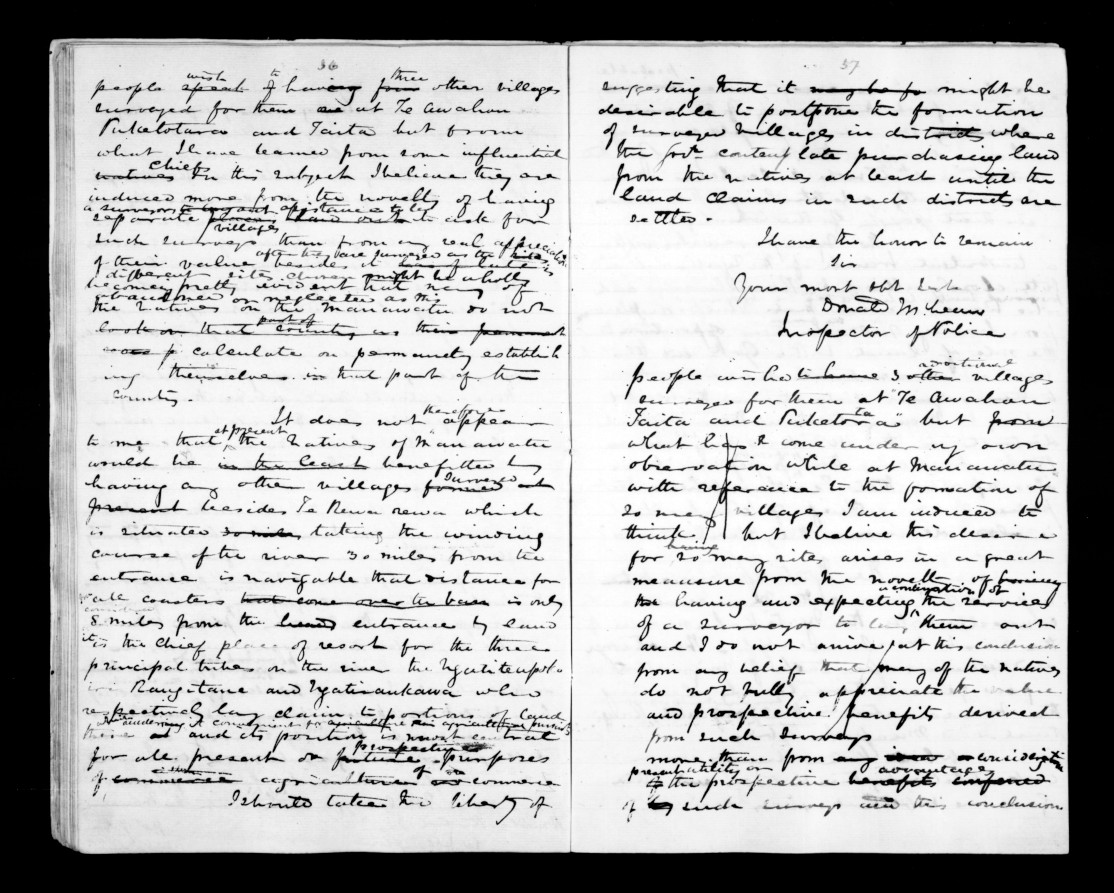 36
wish to three
people speak of having from other villages
surveyed for them at Te Awahou
Puketotara and Taita but from
what I have learned from some influential
chiefs
natives on this subject I believe they are
induced more from the novelty of having
a surveyor to ask for
villages
such surveys than from any real appreciation
of their value besides it
after they have surveyed as the
different sites chosen might be wholly
becomes pretty evident that many of
abandoned or neglected as the
the Natives on the Manawatu do not
part of
look on that country as their permanent
calculate on permanently establish
ing themselves in that part of the
country.
therefore
It does not appear
at present
to me that the Natives of Manawatu
would be in the least benefitted by
surveyed
having any other villages formed at
present besides Te Rewa rewa which
is situated 30 miles taking the winding
course of the river 30 miles from the
entrance is navigable that distance for
all coasters that come over the bar is only
8 miles from the entrance by land
it is the chief place of resort for the three
principal tribes on the river the
Rangitane and Ngatiraukawa who
respectively lay claim to portions of land
rendering it for agricultural
there and its position is most central
prospective
for all present or future purposes
of commerce agriculture or commerce
I should take the liberty of
37
suggesting that it may be for might be
desirable to postpone the formation
of surveyed villages in districts where
the Govt. contemplate purchasing land
from the natives at least until the
land claims in such districts are
settled.
I have the honor to remain
Sir
Your most obt Servt
Donald McLean
Inspector of Police
additional
people wished to have 3 other villages
surveyed for them at Te Awahou
Taita and Puketotara but from
what has come under my own
observation while at Manawatu
with reference to the formation of
so many villages I am induced to
think but I believe this desire
having
for so many sites arises in a great
measure from the novelty of having
continuation of
the having and expecting the services
of a surveyor to lay them out
and I do not arrive at this conclusion
from any belief that many of the natives
do not fully appreciate the value
and prospective benefits derived
from such surveys
more than from any consideration
advantages
to the prospective benefits
of such surveys and this conclusion